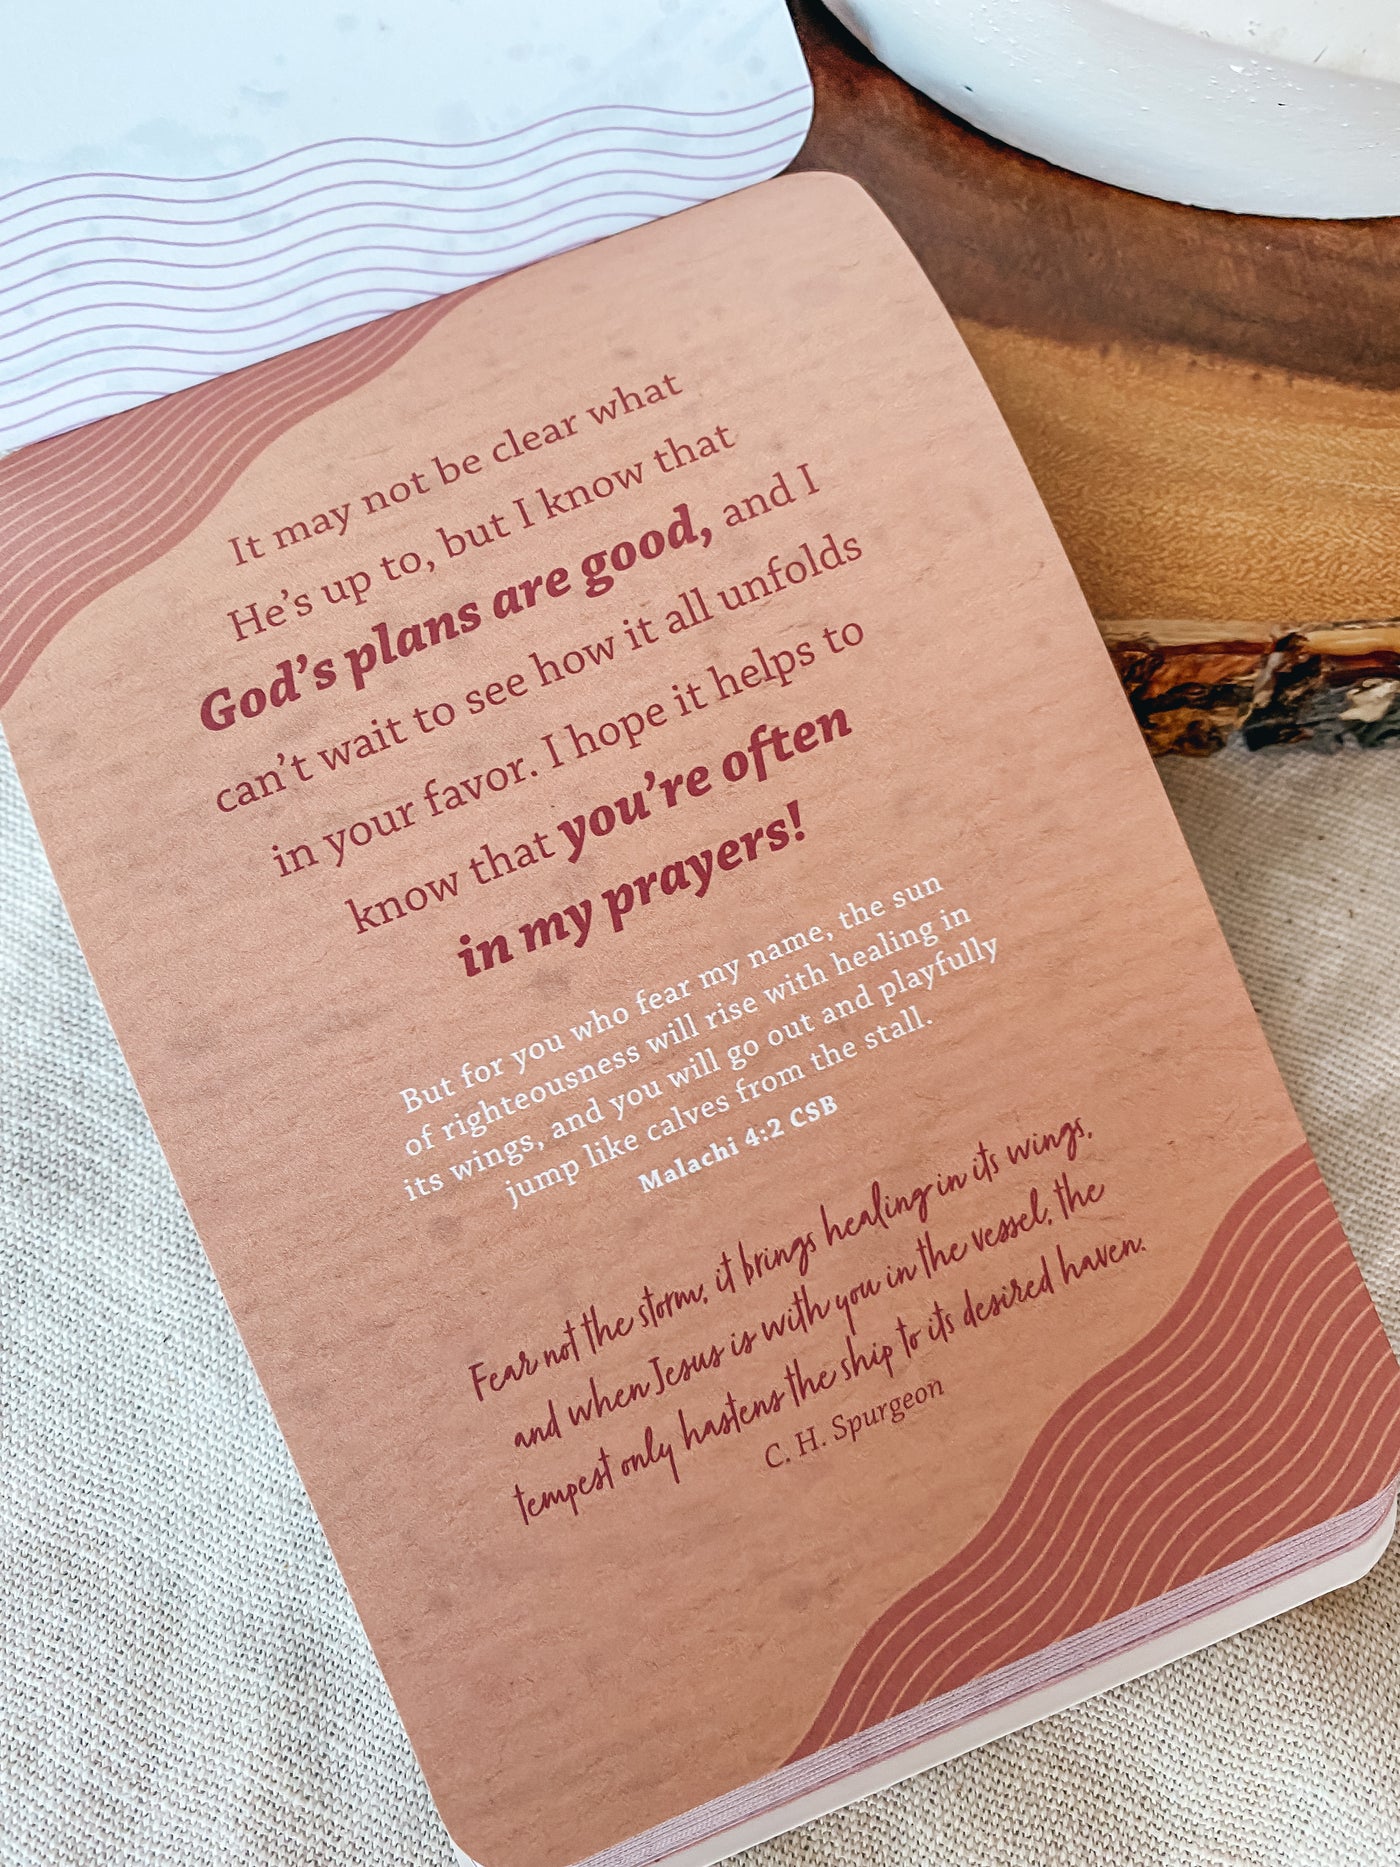 It may not be clear what
He's up to, but I know that
God's plans are good, and I
can't wait to see how it all unfolds
in your favor. I hope it helps to
know that you're often
in my prayers!
But for you who fear my name, the sun
of righteousness will rise with healing in
its wings, and you will go out and playfully
jump like calves from the stall.
Malachi 4:2 CSB
Fear not the storm, it brings healing in its wings,
and when Jesus is with you in the vessel, the
tempest only hastens the ship to its desired haven.
C. H. Spurgeon